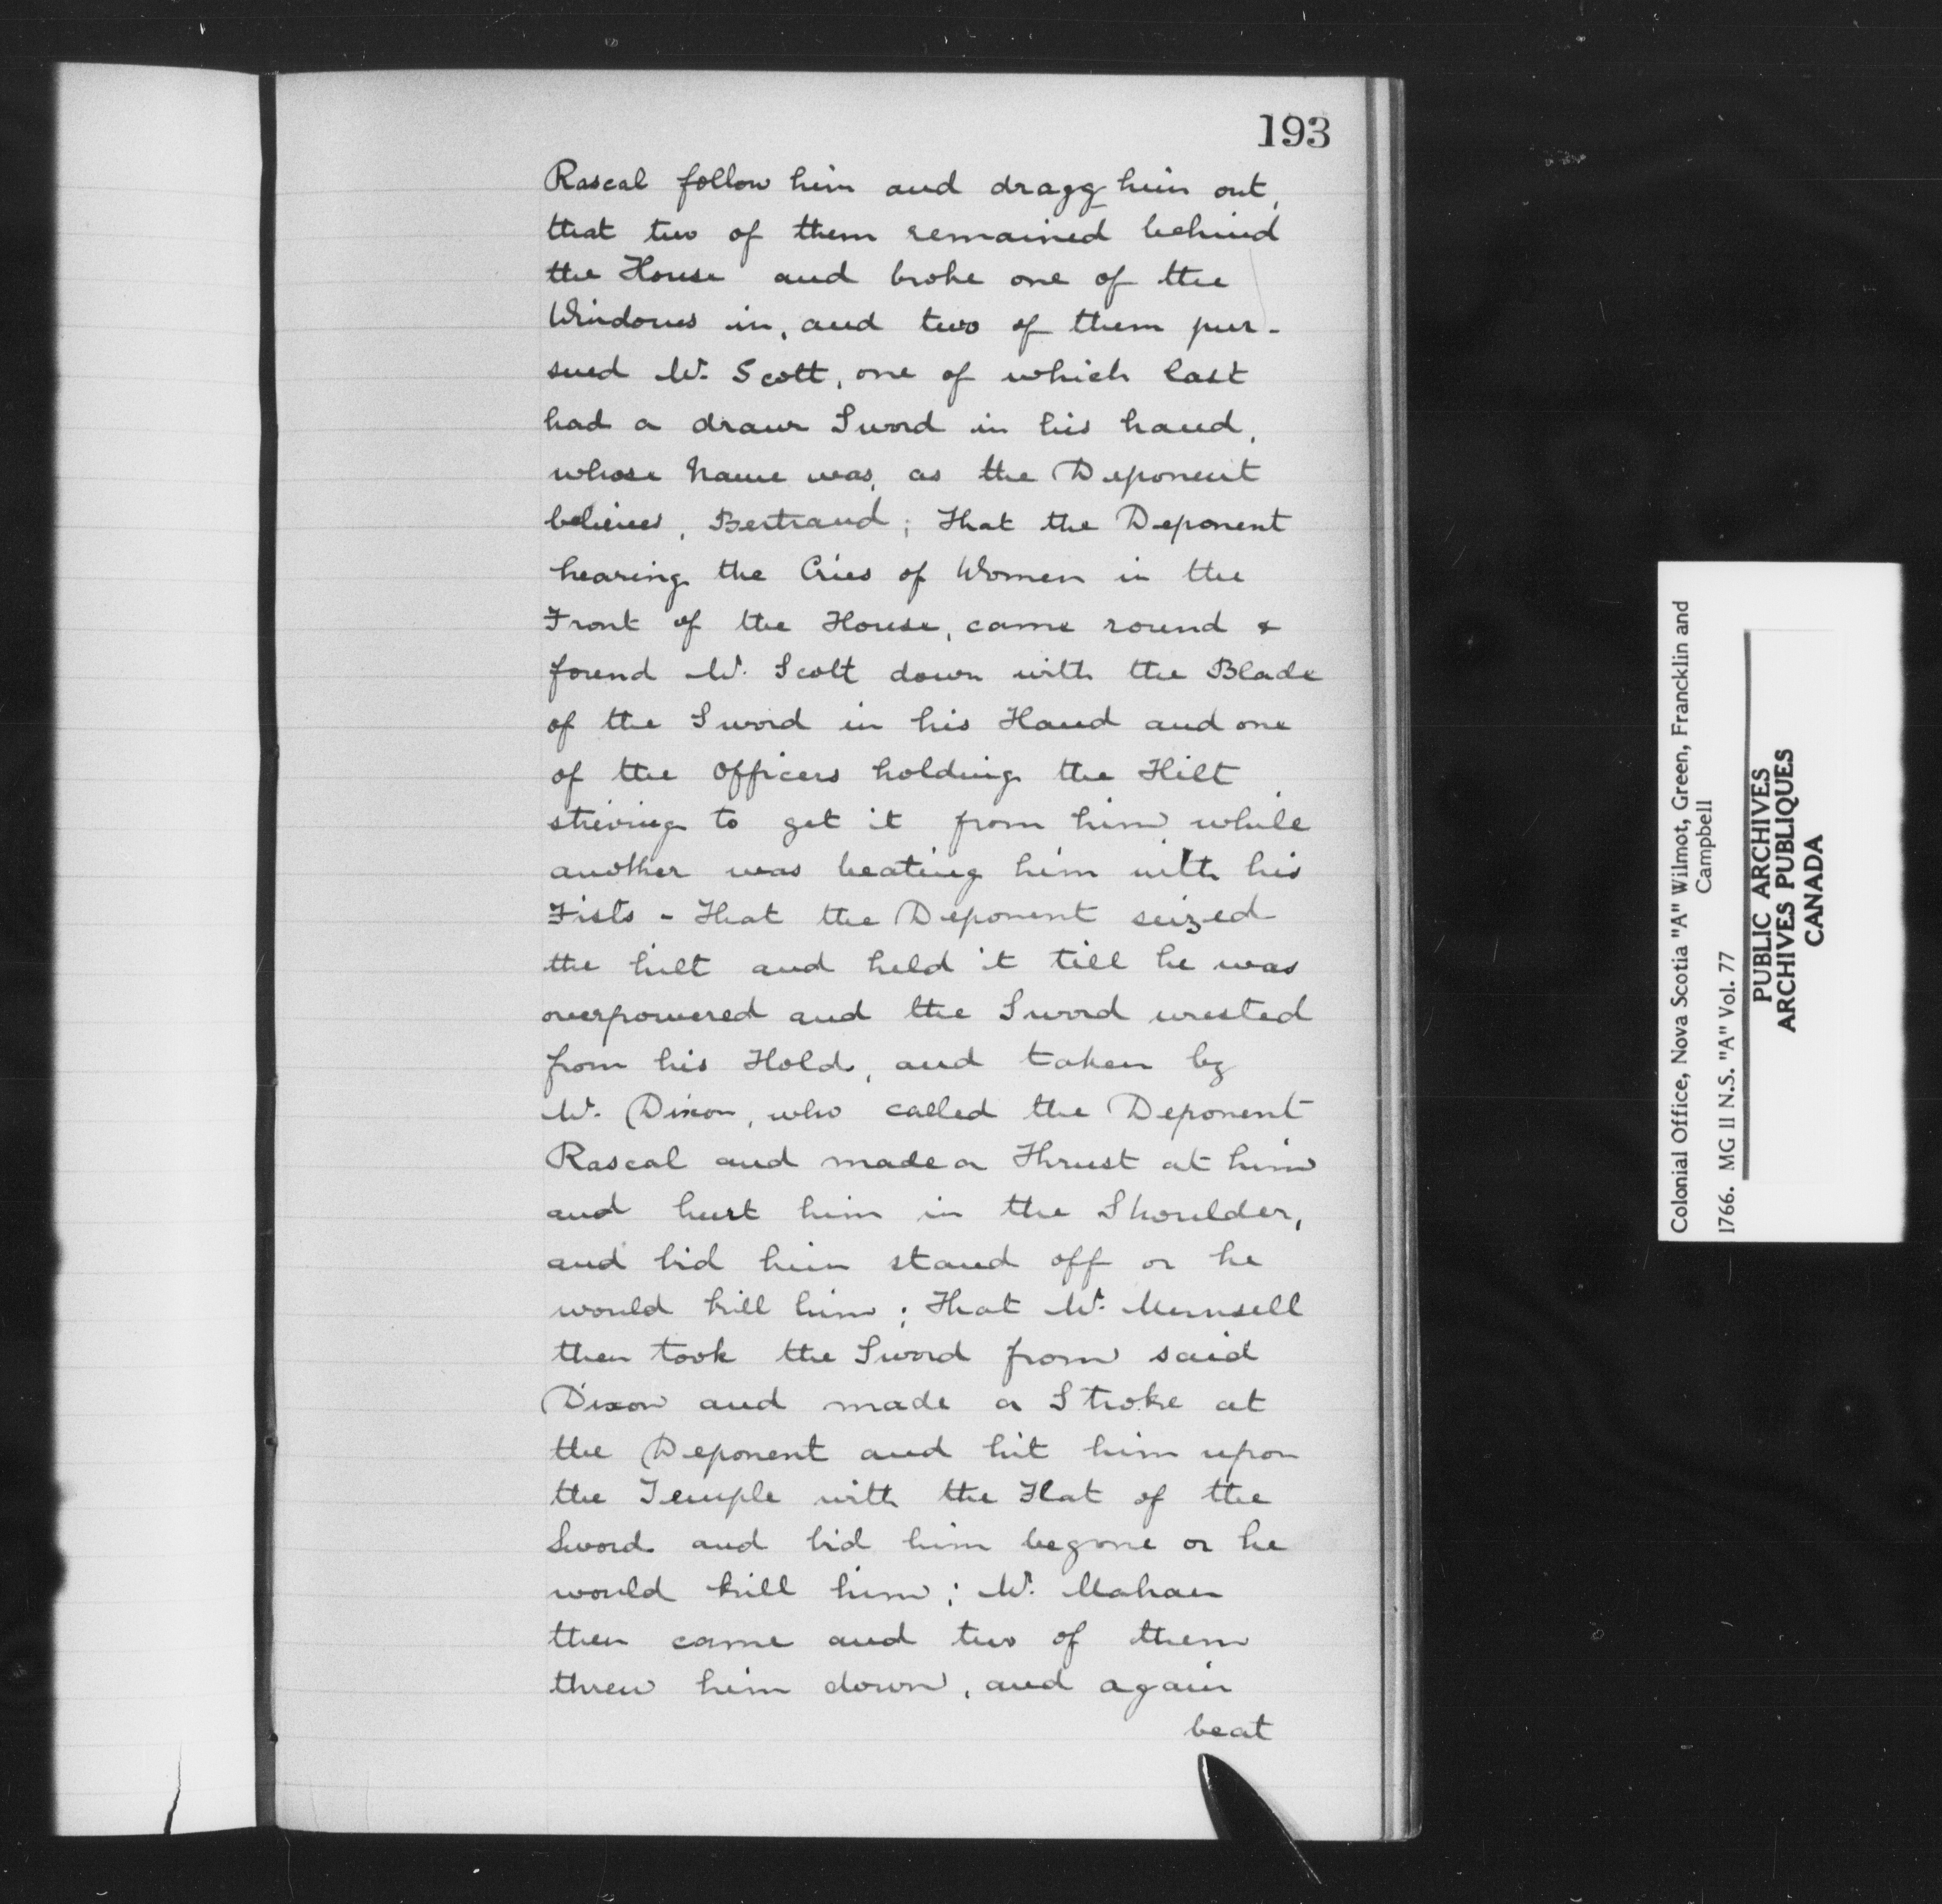 193
Rascal follow him and dragg him out,
that two of them remained behind
the House and broke one of the
Windows in, and two of them pur-
sued Mr. Scott, one of which last
had a drawn Sword in his hand,
whose Name was, as the Deponent
believes, Bertrand; That the Deponent
hearing the Cries of Women in the
Front of the House, came round &
found Mr. Scott down with the Blade
of the Sword in his Hand and one
of the Officers holding the Hilt
striving to get it from him while
another was beating him with his
Fists - That the Deponent seized
the hilt and held it till he was
overpowered and the Sword wrested
from his Hold, and taken by
Mr. Dixon, who called the Deponent
Rascal and made a Thrust at him
and hurt him in the Shoulder,
and bid him stand off or he
would kill him; That Mr. Munsell
then took the Sword from said
Dixon and made a Stroke at
the Deponent and hit him upon
the Temple with the Flat of the
Sword and bid him begone or he
would kill him; Mr. Mahan
then came and two of them
threw him down, and again
beat
Colonial Office, Nova Scotia "A" Wilmot, Green, Francklin and
Campbell
1766. MG 11 N.S. "A" Vol. 77
PUBLIC ARCHIVES
ARCHIVES PUBLIQUES
CANADA